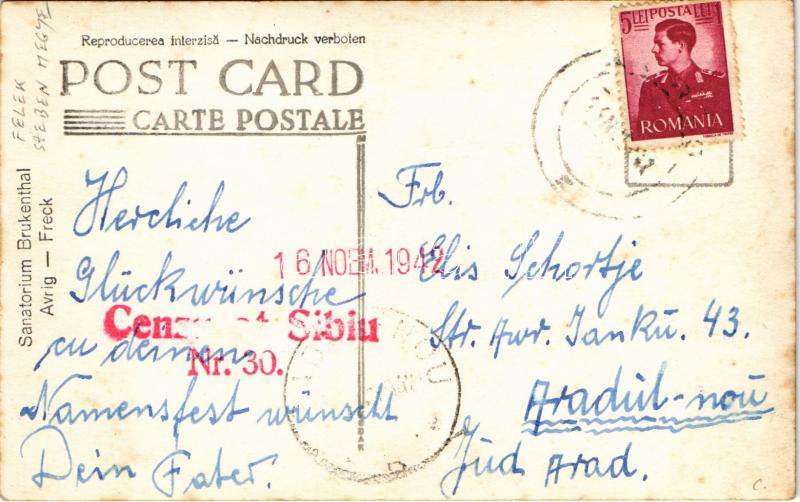 Reproducerea interzisă — Nachdruck verboten
POST CARD
CARTE POSTALE
Sanatorium Brukenthal
Avrig — Freck
FELEK
SZEBEN MEGYE
5 LEI POSTA LEI
ROMANIA
Hercliche
Glückwünsche
cu deinen
Namensfest wünscht
Dein Fater.
16 NOEM. 1942
Cenzurat Sibiu
Nr. 30.
Frl.
Elis Schortje
Str. Avr. Ianku. 43.
Aradul-noŭ
Jud Arad.
NOU
KODAK
C.